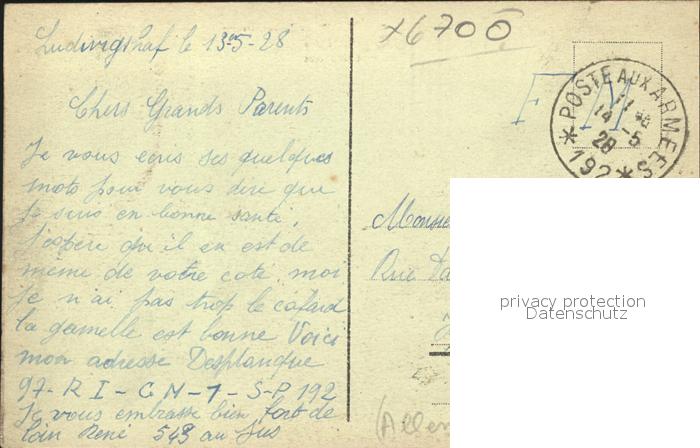 Ludwigshaf le 13-5-28
x6700
F M
POSTE AUX ARMEES
14 -5
28
* 192 *
Chers Grands Parents
Je vous ecris ses quelques
mots pour vous dire que
je suis en bonne santé,
j'espère qu'il en est de
même de votre coté, moi
je n'ai pas trop le cafard
la gamelle est bonne Voici
mon adresse Desplanque
97- R I - C M - 1 - S-P 192
Je vous embrasse bien fort de
loin René 543 au jus
Monsie
Rue
(Allem
privacy protection
Datenschutz